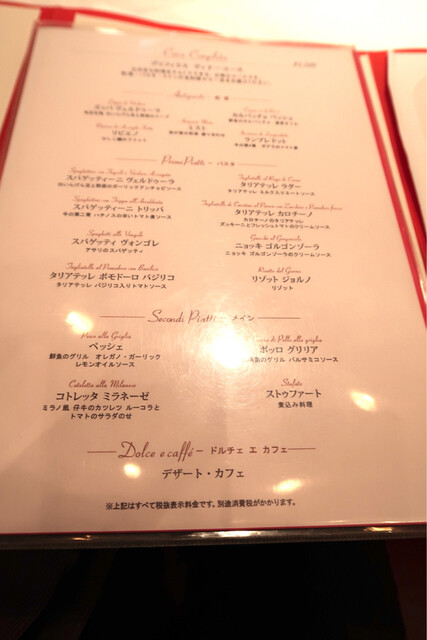 Cena Completa
プリフィクス ディナーコース
Antipasto - 前菜
Zuppa di Verdura
ズッパ ヴェルドゥーラ
カルパッチョ ペッシェ
リピエノ
Misto
ミスト
Primo Piatti - パスタ
Spaghettini con Fagioli e Verdura Arrogato
スパゲッティーニ ヴェルドゥーラ
白いんげん豆と野菜のガーリックアンチョビソース
Tagliatelle al Ragu di Carne
タリアテッレ ラグー
タリアテッレ ミルクミートソース
Spaghettini con Trippa all'Arrabbiata
スパゲッティーニ トリッパ
牛の第二胃 ハチノスの辛いトマト煮ソース
タリアテッレ カロチーノ
カロチーノのタリアテッレ
ズッキーニとフレッシュトマトのクリームソース
Spaghetti alle Vongole
スパゲッティ ヴォンゴレ
アサリのスパゲッティ
Gnocchi al Gorgonzola
ニョッキ ゴルゴンゾーラ
ニョッキ ゴルゴンゾーラのクリームソース
Tagliatelle al Pomodoro con Basilico
タリアテッレ ポモドーロ バジリコ
タリアテッレ バジリコ入りトマトソース
Risotto del Giorno
リゾット ジョルノ
リゾット
Secondi Piatti - メイン
Pesce alla Griglia
ペッシェ
鮮魚のグリル オレガノ・ガーリック
レモンオイルソース
di Pollo alla griglia
ポッロ グリリア
のグリル バルサミコソース
Cotoletta alla Milanese
コトレッタ ミラネーゼ
ミラノ風 仔牛のカツレツ ルーコラと
トマトのサラダのせ
Stufato
ストゥファート
煮込み料理
Dolce e caffé - ドルチェ エ カフェ
デザート・カフェ
※上記はすべて税抜表示料金です。別途消費税がかかります。